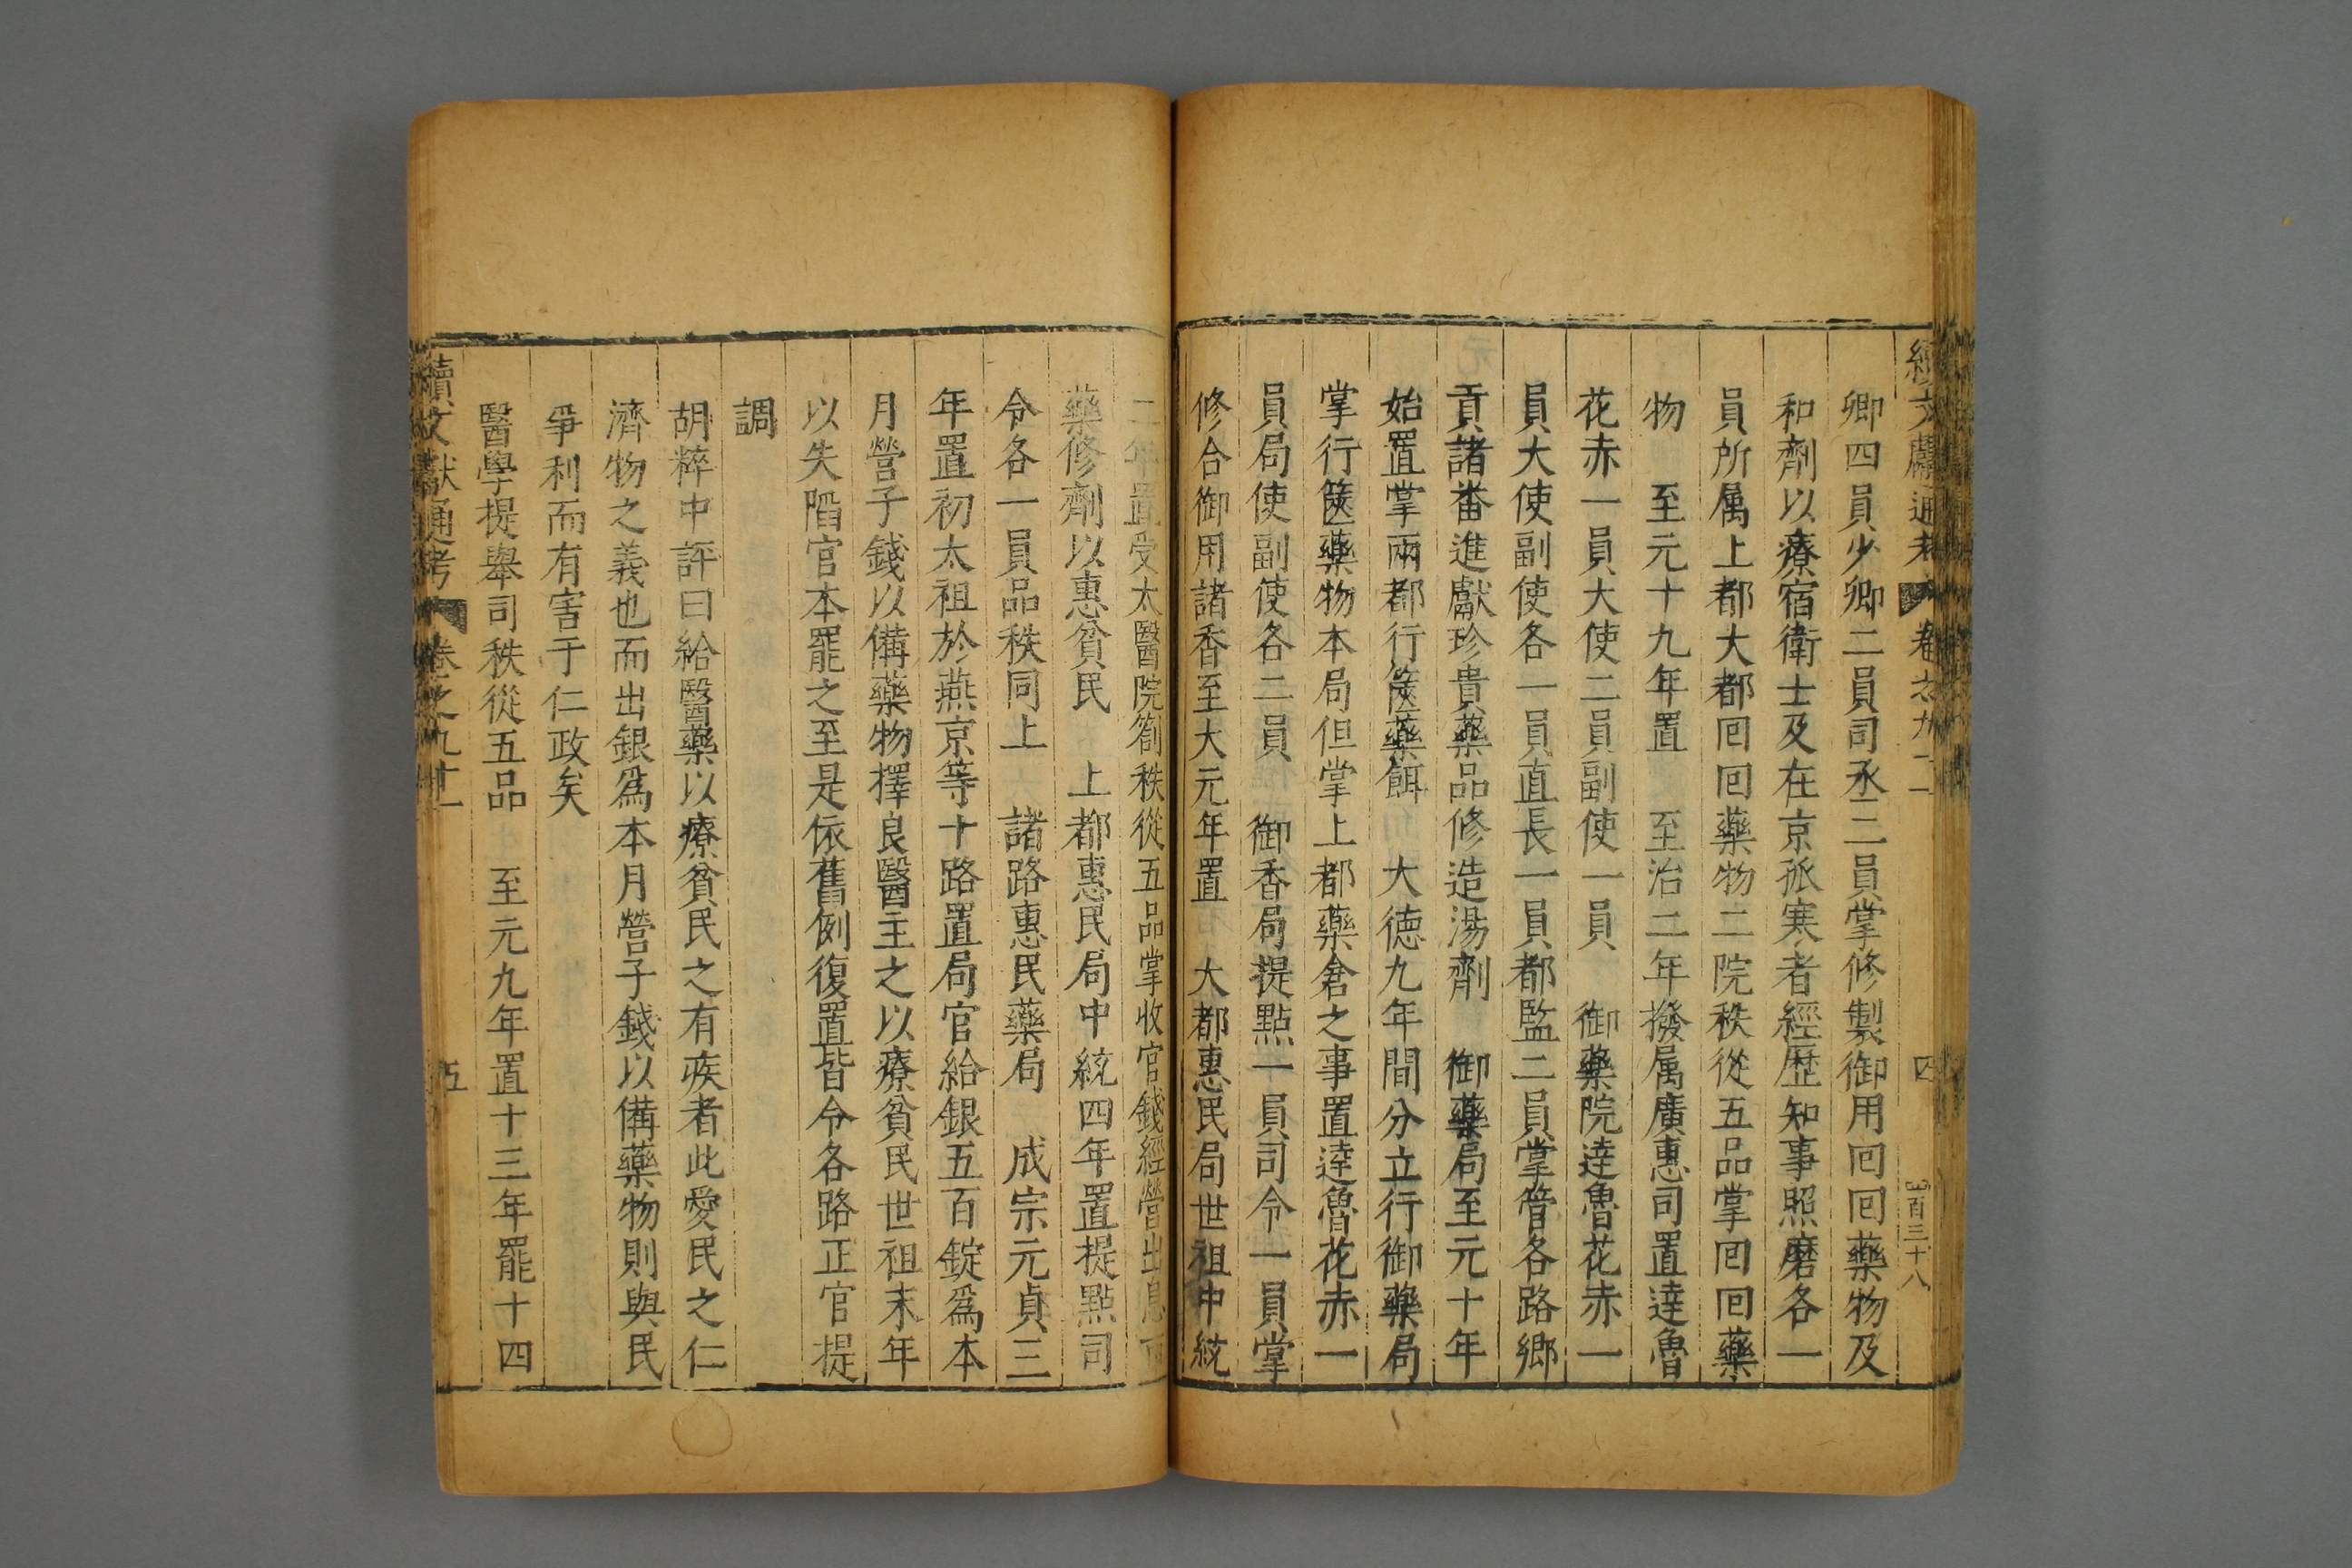 續文獻通考 卷之九十二 四 百三十八
卿四員少卿二員司丞二員掌修製御用回回藥物及
和劑以療宿衛士及在京孤寒者經歷知事照磨各一
員所属上都大都回回藥物二院秩從五品掌回回藥
物 至元十九年置 至治二年撥属廣惠司置達魯
花赤一員大使二員副使一員 御藥院達魯花赤一
員大使副使各一員直長一員都監二員掌管各路鄉
貢諸蕃進獻珍貴藥品修造湯劑 御藥局至元十年
始置掌兩都行篋藥餌 大德九年間分立行御藥局
掌行篋藥物本局但掌上都藥倉之事置達魯花赤一
員局使副使各二員 御香局提點一員司令一員掌
修合御用諸香至大元年置 大都惠民局世祖中統
二年置受太醫院劄秩從五品掌收官錢經營出息市
藥修劑以惠貧民 上都惠民局中統四年置提點司
令各一員品秩同上 諸路惠民藥局 成宗元貞三
年置初太祖於燕京等十路置局官給銀五百錠爲本
月營子錢以備藥物擇良醫主之以療貧民世祖末年
以失陷官本罷之至是依舊例復置皆令各路正官提
調
胡粹中評曰給醫藥以療貧民之有疾者此愛民之仁
濟物之義也而出銀爲本月營子錢以備藥物則與民
爭利而有害于仁政矣
醫學提舉司秩從五品 至元九年置十三年罷十四
續文獻通考 卷之九十二 五